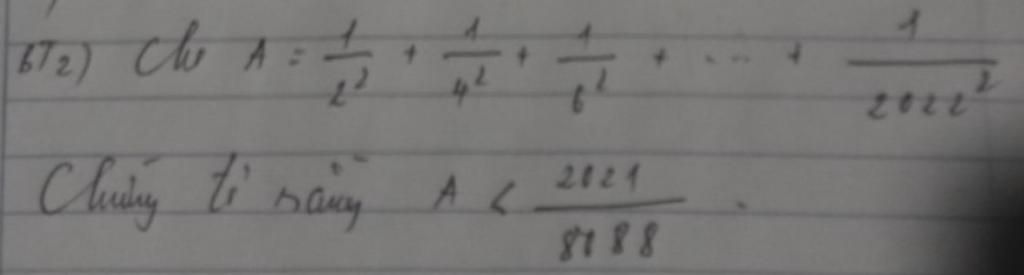 BT2) Cho A = 1/2² + 1/4² + 1/6² + ... + 1/2022²
Chứng tỏ rằng A < 2021/8088.